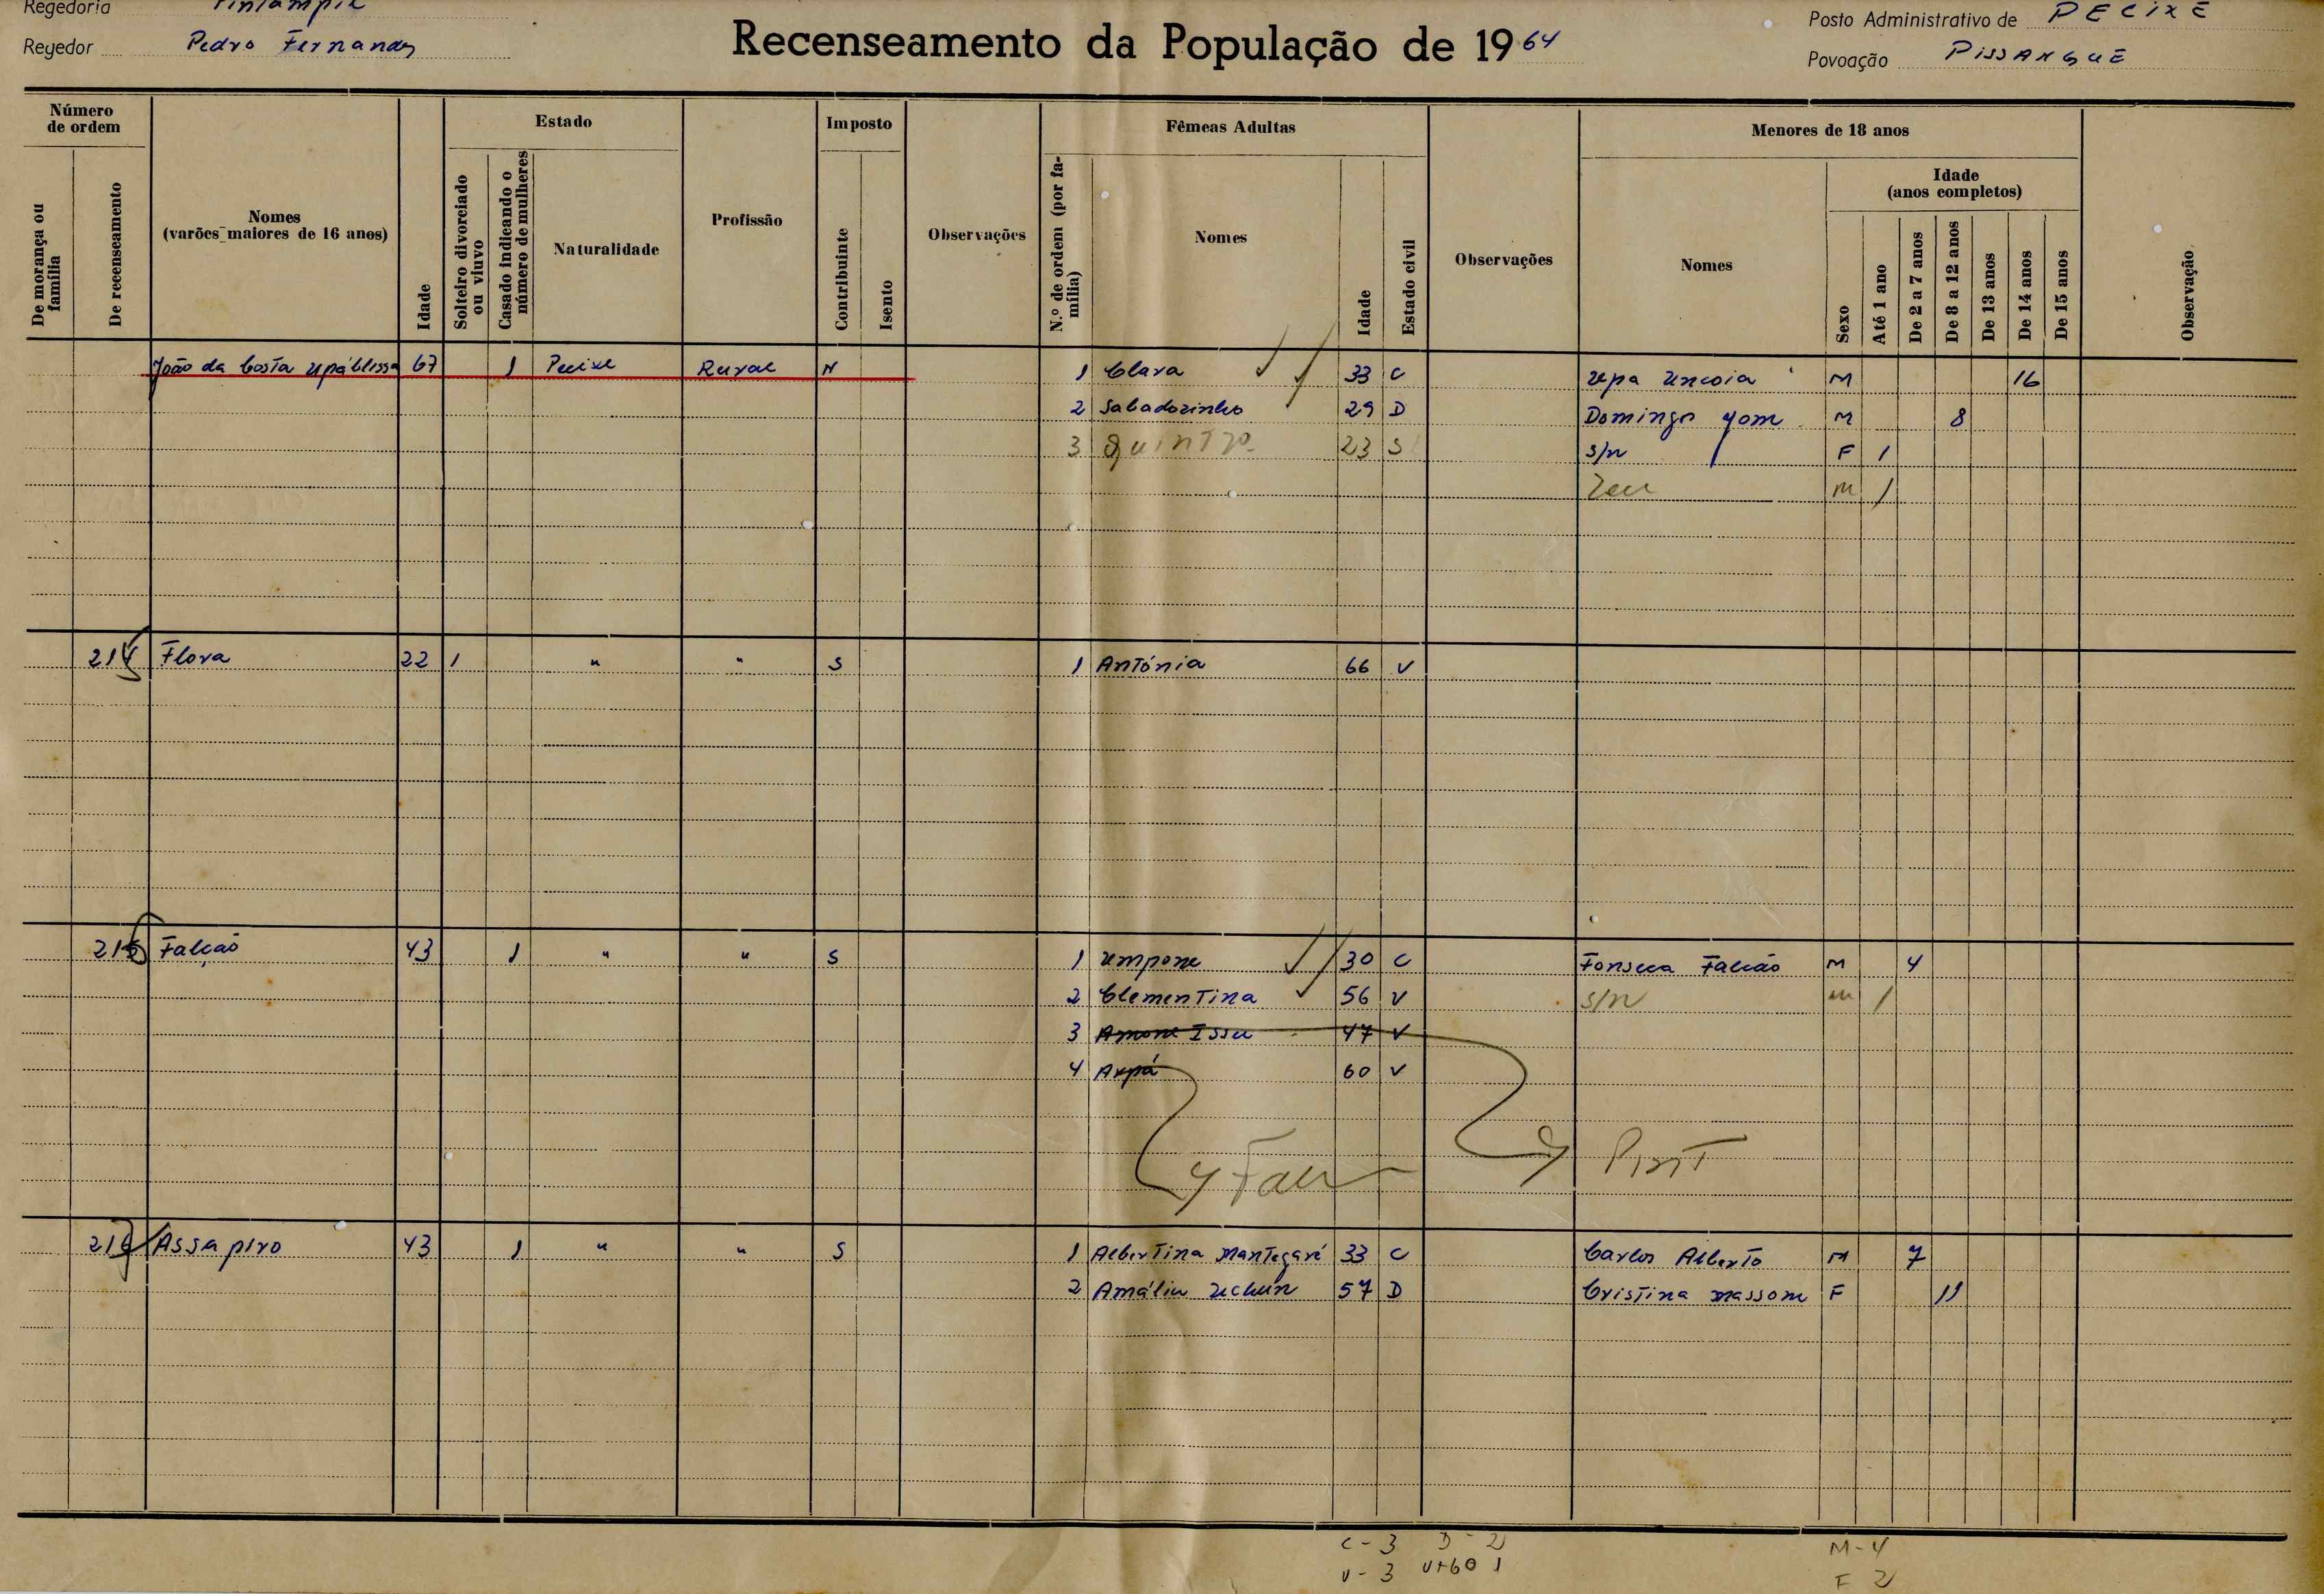 Regedoria
Posto Administrativo de PECIXE
Regedor Pedro Fernandes
Recenseamento da População de 1964
Povoação PISSANGUE
Número de ordem
De morança ou família
De recenseamento
Nomes
(varões maiores de 16 anos)
Idade
Estado
Solteiro divorciado ou viuvo
Casado indicando o número de mulheres
Naturalidade
Profissão
Imposto
Contribuinte
Isento
Observações
Fêmeas Adultas
N.º de ordem (por família)
Nomes
Idade
Estado civil
Observações
Menores de 18 anos
Nomes
Idade
(anos completos)
Sexo
Até 1 ano
De 2 a 7 anos
De 8 a 12 anos
De 13 anos
De 14 anos
De 15 anos
Observação
João da Costa 67 1 Pecixe Rural N 1 Clara 33 C M 16
2 Sabadozinho 29 D Domingos M 8
3 23 S s/n F 1
M 1
Flora 22 1 " " S 1 António 66 V
Falcão 43 1 " " S 1 Umpone 30 C Fonseca Falcão M 4
2 Clementina 56 V s/n M 1
3 Amone Issu 47 V
4 60 V
Assapiro 43 1 " " S 1 Albertina 33 C Carlos Alberto M 7
2 Amália 57 D Cristina Massome F 11
C - 3 D - 2
V - 3 V+60 1
M - 4
F 2